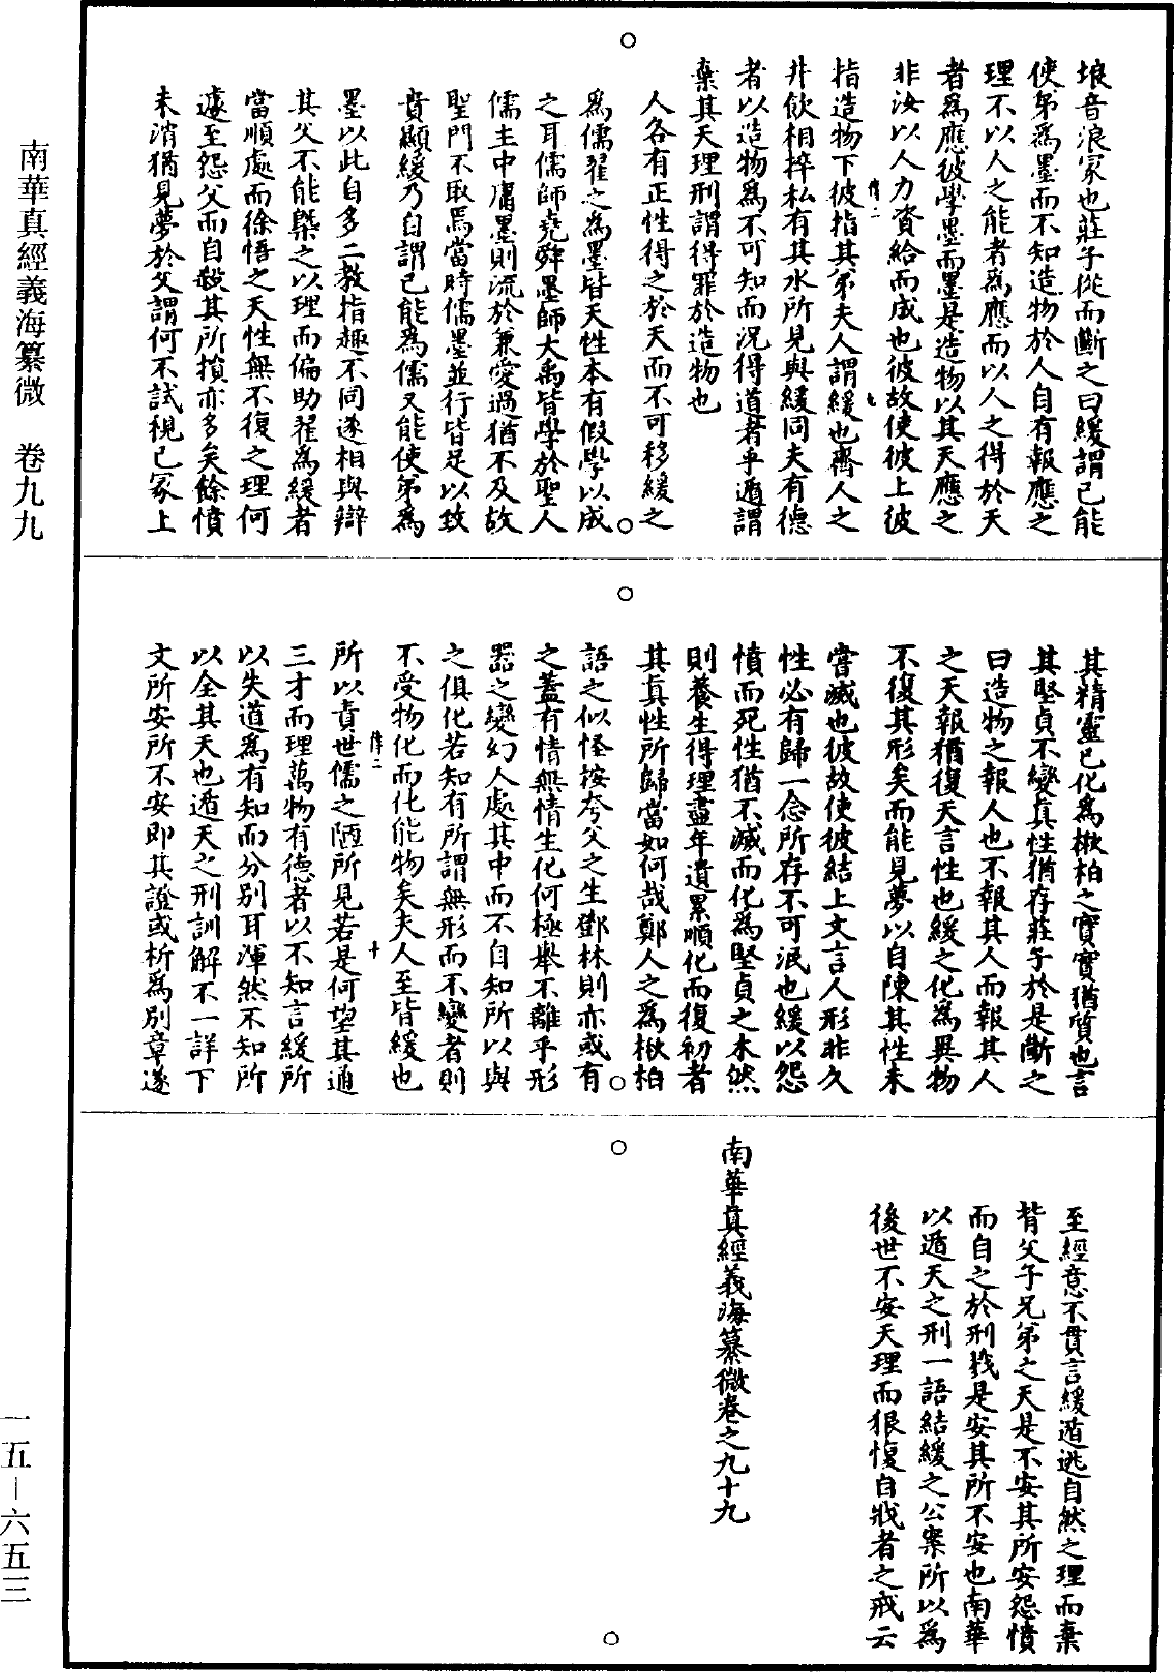 埌音浪冢也莊子從而斷之曰緩謂已能
使弟為墨而不知造物於人自有報應之
理不以人之能者為應而以人之得於天
者為應彼學墨而墨是造物以其天應之
非汝以人力資給而成也彼故使彼上彼
指造物下彼指其弟夫人謂緩也齊人之
井飲相捽私有其水所見與緩同夫有德
者以造物為不可知而況得道者乎遁謂
棄其天理刑謂得罪於造物也
人各有正性得之於天而不可移緩之
為儒翟之為墨皆天性本有假學以成
之耳儒師堯舜墨師大禹皆學於聖人
儒主中庸墨則流於兼愛過猶不及故
聖門不取焉當時儒墨並行皆足以致
貴顯緩乃自謂已能為儒又能使弟為
墨以此自多二教指趣不同遂相與辯
其父不能槩之以理而偏助翟為緩者
當順處而徐悟之天性無不復之理何
遽至怨父而自殺其所損亦多矣餘憤
未消猶見夢於父謂何不試視已冢上
其精靈已化為楸柏之實實猶質也言
其堅貞不變真性猶存莊子於是斷之
曰造物之報人也不報其人而報其人
之天報猶復天言性也緩之化為異物
不復其形矣而能見夢以自陳其性未
嘗滅也彼故使彼結上文言人形非久
性必有歸一念所存不可泯也緩以怨
憤而死性猶不滅而化為堅貞之木然
則養生得理盡年遺累順化而復初者
其真性所歸當如何哉鄭人之為楸柏
語之似怪按夸父之生鄧林則亦或有
之蓋有情無情生化何極舉不離乎形
器之變幻人處其中而不自知所以與
之俱化若知有所謂無形而不變者則
不受物化而化能物矣夫人至皆緩也
所以責世儒之陋所見若是何望其通
三才而理萬物有德者以不知言緩所
以失道為有知而分別耳渾然不知所
以全其天也遁天之刑訓解不一詳下
文所安所不安即其證或析為別章遂
至經意不貫言緩遁逃自然之理而棄
背父子兄弟之天是不安其所安怨憤
而自之於刑戮是安其所不安也南華
以遁天之刑一語結緩之公案所以為
後世不安天理而狠愎自戕者之戒云
南華真經義海纂微卷之九十九
南華真經義海纂微　卷九九
一五—六五三